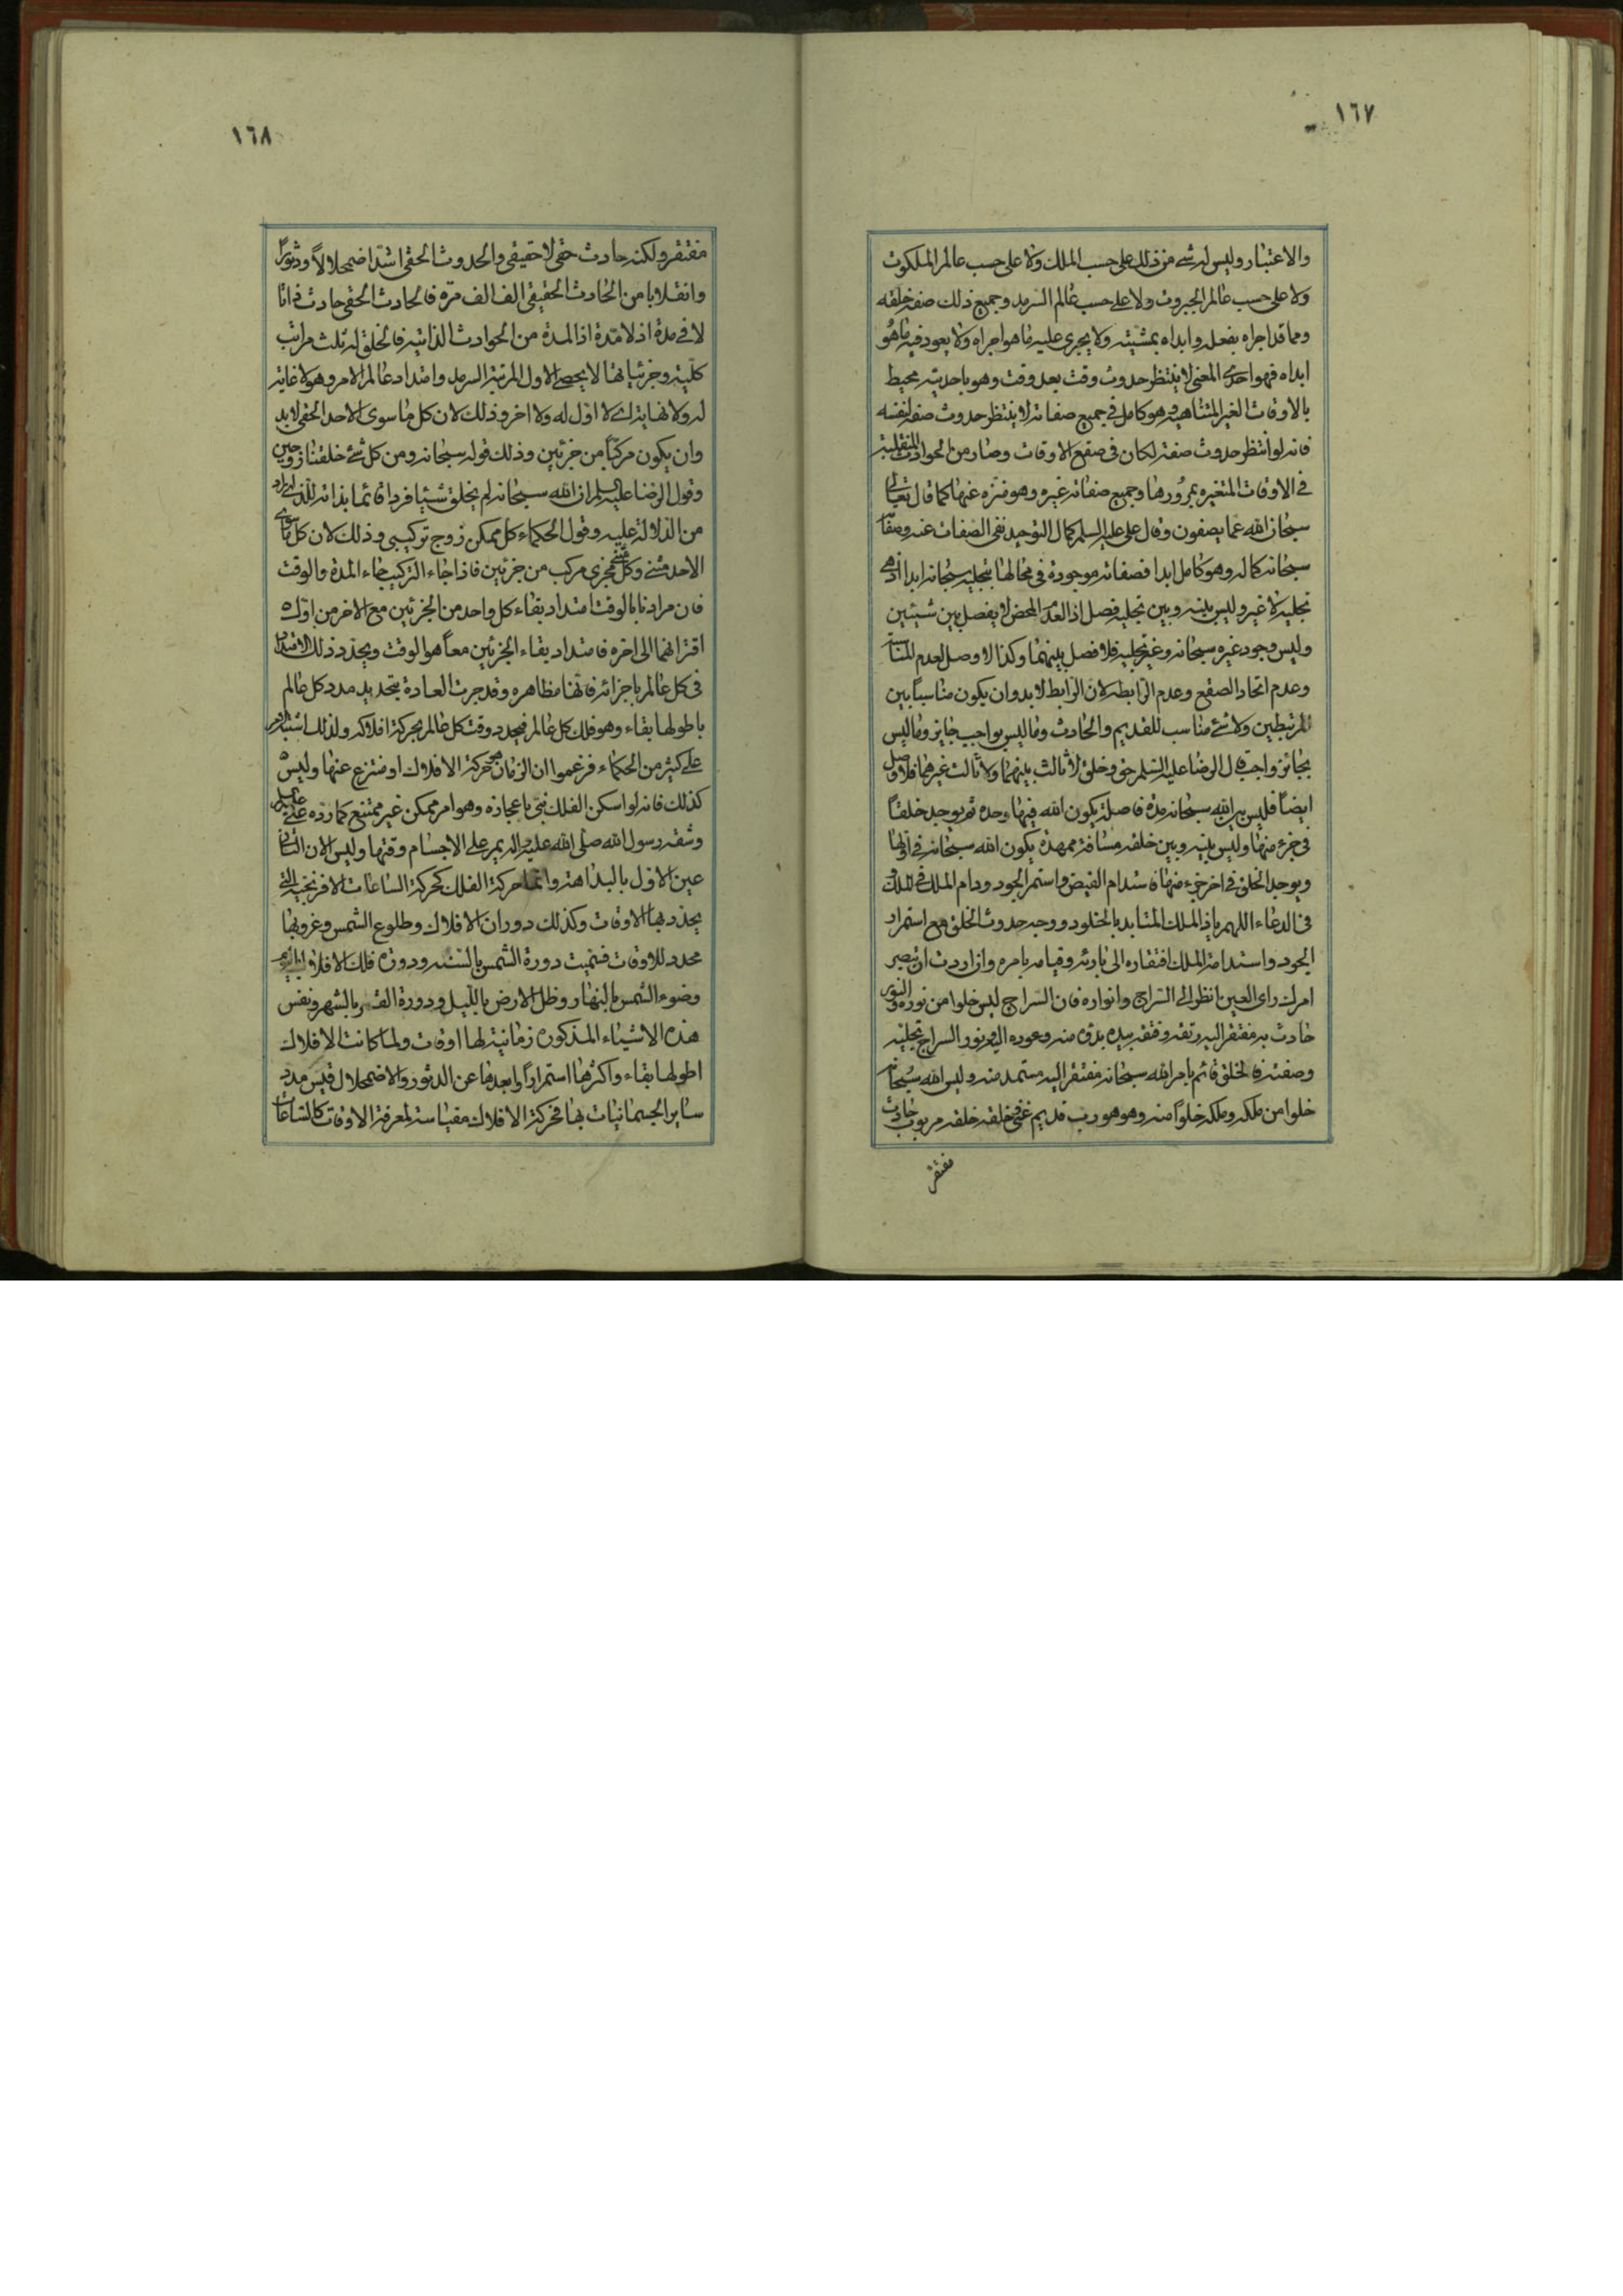 ١٦٧
والاعتبار وليس له شئ من ذلك على حسب الملك ولا على حسب عالم الملكوت
ولا على حسب عالم الجبروت ولا على حسب عالم السرمد وجميع ذلك صفة خلقه
ومما قد اجراه بفعله وابداه بمشيته ولا يجرى عليه ما هو اجراه ولا يعود فيه ما هو
ابداه فهو احدى المعنى لا ينتظر حدوث وقت بعد وقت وهو باحديته محيط
بالاوقات الغير المتناهية وهو كامل فى جميع صفاته لا ينتظر حدوث صفة لنفسه
فانه لو انتظر حدوث صفة لكان فى صقع الاوقات وصار من الحوادث المتقلبة
فى الاوقات المتغيره بمرورها وجميع صفاته غيره وهو منزه عنها كما قال تعالى
سبحان الله عما يصفون وقال على عليه السلم كمال التوحيد نفى الصفات عنه وصفاته
سبحانه كماله وهو كامل ابدا فصفاته موجودة فى محالها بتجليه سبحانه ابدا اذ هى
تجليه لا غير وليس بينه وبين تجليه فصل اذ العدم المحض لا يفصل بين شيئين
وليس وجود غيره سبحانه وغير تجليه فلا فصل بينهما وكذا لا وصل لعدم المناسبة
وعدم اتحاد الصقع وعدم الرابطه لان الرابط لا بد وان يكون مناسباً بين
المرتبطين ولا شئ مناسب للقديم والحادث وما ليس بواجب جايز وما ليس
بجائز واجب قال الرضا عليه السلم حق وخلق لا ثالث بينهما ولا ثالث غيرهما فلا وصل
ايضاً فليس بين الله سبحانه مدة فاصلة يكون الله فيها وحده ثم يوجد خلقاً
فى جزء منها وليس بينه وبين خلقه مسافة ممهدة يكون الله سبحانه فى اولها
ويوجد الخلق فى اخر جزء منها فاستدام الفيض واستمر الجود ودام الملك فى الملك و
فى الدعاء اللهم ياذا الملك المتابد بالخلود ووجه حدوث الخلق مع استمرار
الجود واستدامة الملك افتقاره الى بارئه وقيامه بامره وان اردت ان تبصر
امرك راى العين فانظر الى السراج وانواره فان السراج ليس خلوا من نوره والنور
حادث به مفتقر اليه وتقه وفتقه بيده بدؤه منه وعوده اليه ونور السراج تجليه
وصفته فالخلق قائم بامر الله سبحانه مفتقر اليه مستمد منه وليس الله سبحانه
خلوا من ملكه وملكه خلواً منه وهو هو رب قديم غنى وخلقه خلقه مربوب حادث
مفتقر
١٦٨
مفتقر ولكنه حادث حقى لا حقيقى والحدوث الحقى اشد اضمحلالاً ودثوراً
وانقلابا من الحادث الحقيقى الف الف مرة فالحادث الحقى حادث ذاتا
لا فى مدة اذ لا مدة اذ المدة من الحوادث الذاتيه فالخلق له ثلث مراتب
كلية وجزئياتها لا يحصى الاول المرتبة السرمد وامتداد عالم الامر وهو لا غاية
له ولا نهاية له لا اول له ولا اخر وذلك لان كل ما سوى الاحد الحقى لا بد
وان يكون مركباً من جزئين وذلك قوله سبحانه ومن كل شئ خلقنا زوجين
وقول الرضا عليه السلم ان الله سبحانه لم يخلق شيئا فردا قائما بذاته للذى اراد
من الدلالة عليه وقول الحكماء كل ممكن زوج تركيبى وذلك لان كل ما سوى
الاحد مثنى وكل مثنى متجزى مركب من جزئين فاذا جاء التركيب جاء المدة والوقت
فان مرادنا بالوقت امتداد بقاء كل واحد من الجزئين مع الاخر من اول
اقترانهما الى اخره فامتداد بقاء الجزئين معاً هو الوقت ويحدد ذلك الامتداد
فى كل عالم باجزائه فانها مظاهره وقد جرت العادة بتحديد مدد كل عالم
باطولها بقاء وهو فلك كل عالم فيحدد وقت كل عالم بحركة افلاكه ولذلك اشتبه الامر
على كثير من الحكماء فزعموا ان الزمان هو حركة الافلاك او منتزع عنها وليس
كذلك فانه لو اسكن الفلك نبى باعجازه وهو امر ممكن غير ممتنع كما رده على عليه السلم
وشقه رسول الله صلى الله عليه واله يمر على الاجسام وقتها وليس الان الثانى
عين الاول بالبداهة وانما حركة الفلك كحركة الساعات الافرنجية التى
يحدد بها الاوقات وكذلك دوران الافلاك وطلوع الشمس وغروبها
محدد للاوقات فسميت دورة الشمس بالسنه ودورة فلك الافلاك باليوم
وضوء الشمس بالنهار وظل الارض بالليل ودورة القمر بالشهر ونفس
هذه الاشياء المذكورة زمانية لها اوقات ولما كانت الافلاك
اطولها بقاء واكثرها استمراراً وابعدها عن الدثور والاضمحلال قيس مدد
ساير الجسمانيات بها فحركة الافلاك مقياسة لمعرفة الاوقات كالساعات